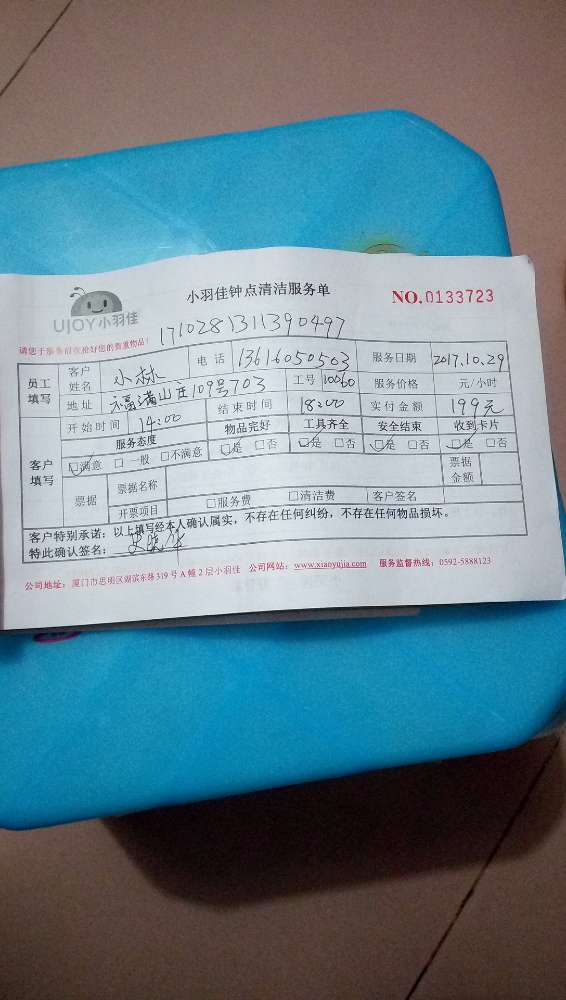 小羽佳钟点清洁服务单
NO.0133723
UJOY小羽佳
请您于服务前收拾好您的贵重物品!
1710281311390497
员工填写 客户姓名 小林 电话 13616050503 服务日期 2017.10.29
地址 福满山庄109号703 工号 10060 服务价格 元/小时
开始时间 14:00 结束时间 18:00 实付金额 199元
客户填写 服务态度 物品完好 工具齐全 安全结束 收到卡片
☑满意 □一般 □不满意 ☑是 □否 ☑是 □否 ☑是 □否 ☑是 □否
票据 票据名称 票据金额
开票项目 □服务费 □清洁费 客户签名
客户特别承诺:以上填写经本人确认属实,不存在任何纠纷,不存在任何物品损坏。
特此确认签名:
公司地址:厦门市思明区湖滨东路319号A幢2层小羽佳 公司网站:www.xiaoyujia.com 服务监督热线:0592-5888123